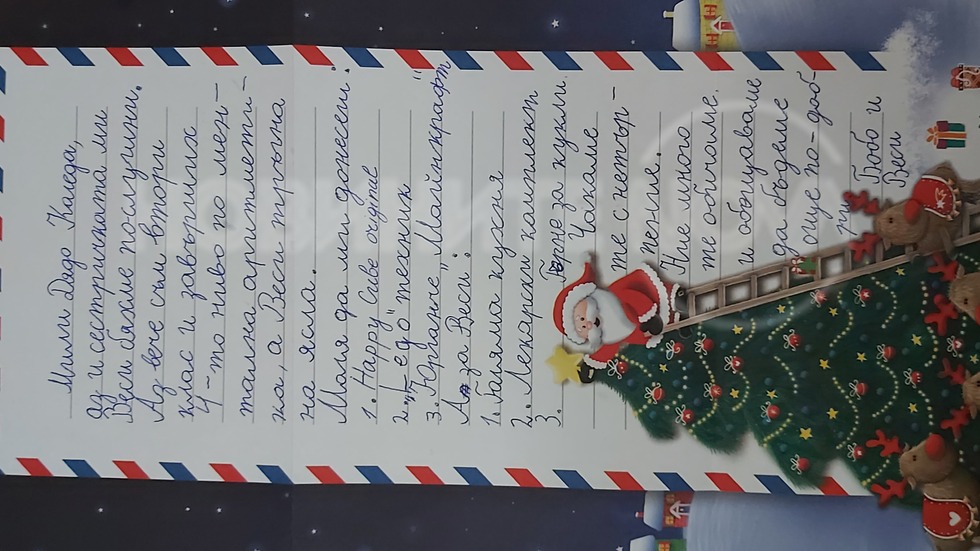 Мили Дядо Коледа,
аз и сестричката ми
Веси бяхме послушни.
Аз вече съм втори
клас и завърших
4-то ниво по мен-
тална аритмети-
ка, а Веси тръгна
на ясла.
Моля да ми донесеш:
1. Happy Cube
2. "Тед" техник
3. Юрганче "Майнкрафт"
А за Веси:
1. Голяма кухня
2. Лекарски комплект
3. за кукли
Чакаме
те с нетър-
пение.
Ние много
те обичаме.
и обещаваме
да бъдеме
още по-доб-
ри
Боби и
Веси